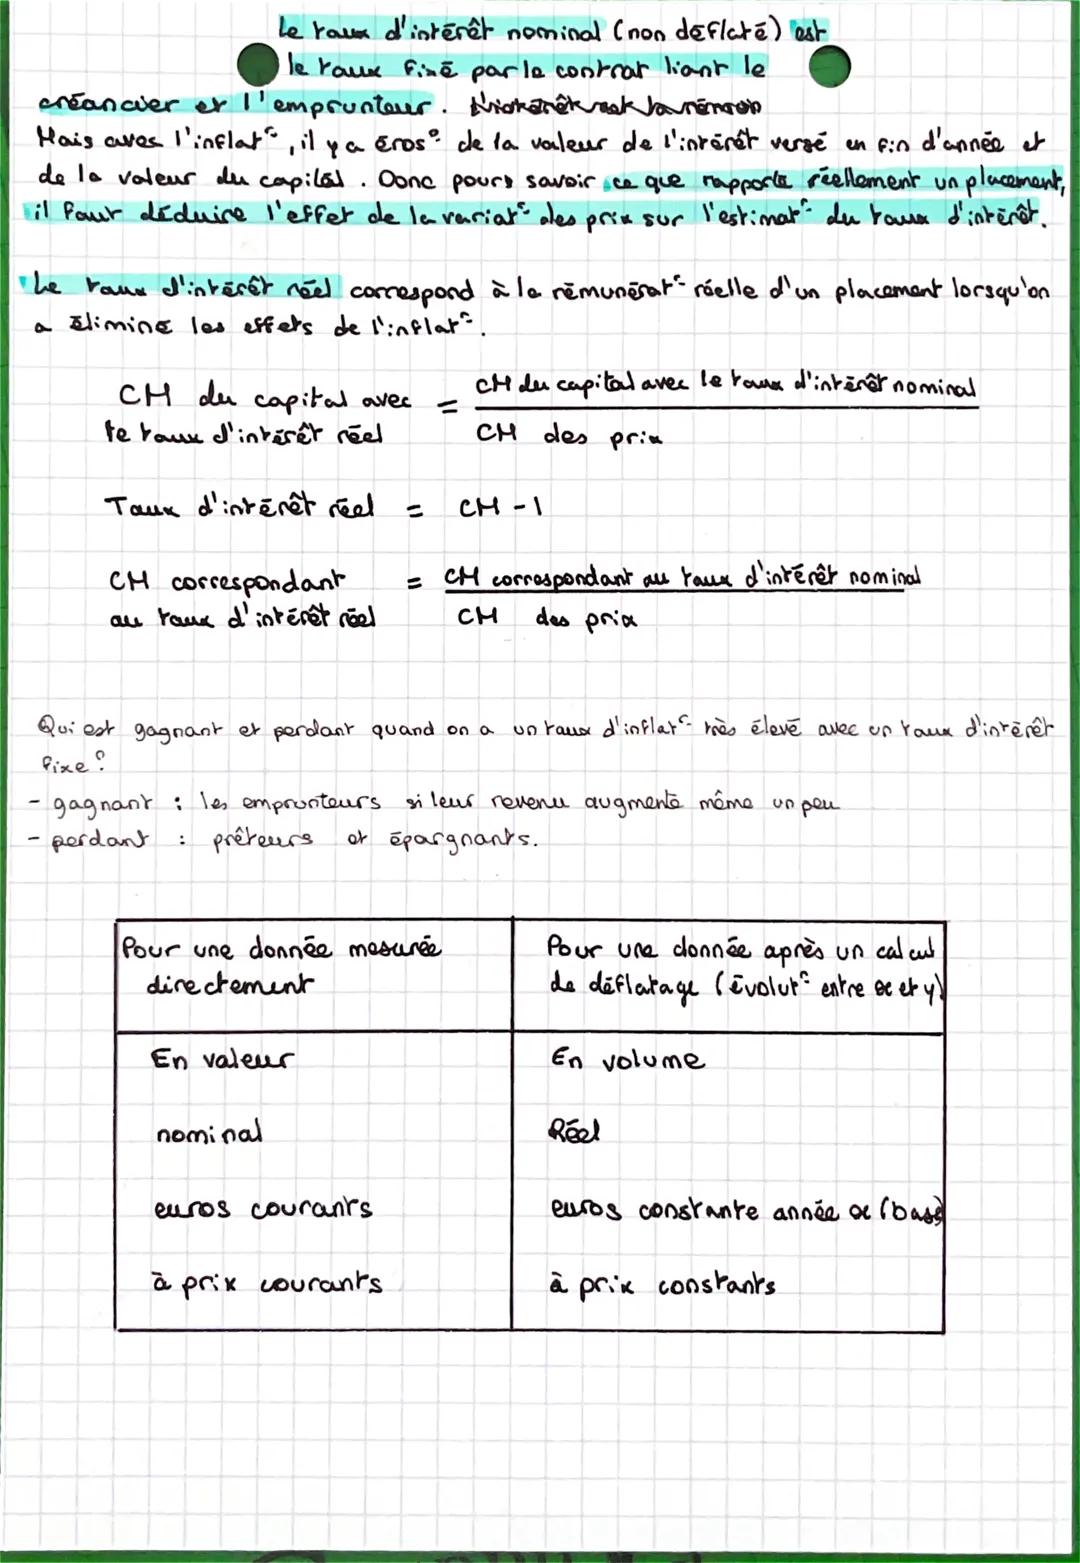 Le taux d'intérêt nominal (non déflaté) est
le taux fixé par le contrat liant le
créancier et l'emprunteur.
Mais avec l'inflat°, il y a éros° de la valeur de l'intérêt versé en fin d'année et
de la valeur du capital. Donc pour savoir ce que rapporte réellement un placement,
il faut déduire l'effet de la variat° des prix sur l'estimat° du taux d'intérêt.
Le taux d'intérêt réel correspond à la rémunérat° réelle d'un placement lorsqu'on
a éliminé les effets de l'inflat°.
CM du capital avec = CM du capital avec le taux d'intérêt nominal
le taux d'intérêt réel CM des prix
Taux d'intérêt réel = CM - 1
CM correspondant = CM correspondant au taux d'intérêt nominal
au taux d'intérêt réel CM des prix
Qui est gagnant et perdant quand on a un taux d'inflat° très élevé avec un taux d'intérêt
fixe ?
- gagnant : les emprunteurs si leur revenu augmente même un peu
- perdant : prêteurs et épargnants.
Pour une donnée mesurée
directement
Pour une donnée après un calcul
de déflatage (évolut° entre x et y)
En valeur
En volume
nominal
Réel
euros courants
euros constante année x (base)
à prix courants
à prix constants